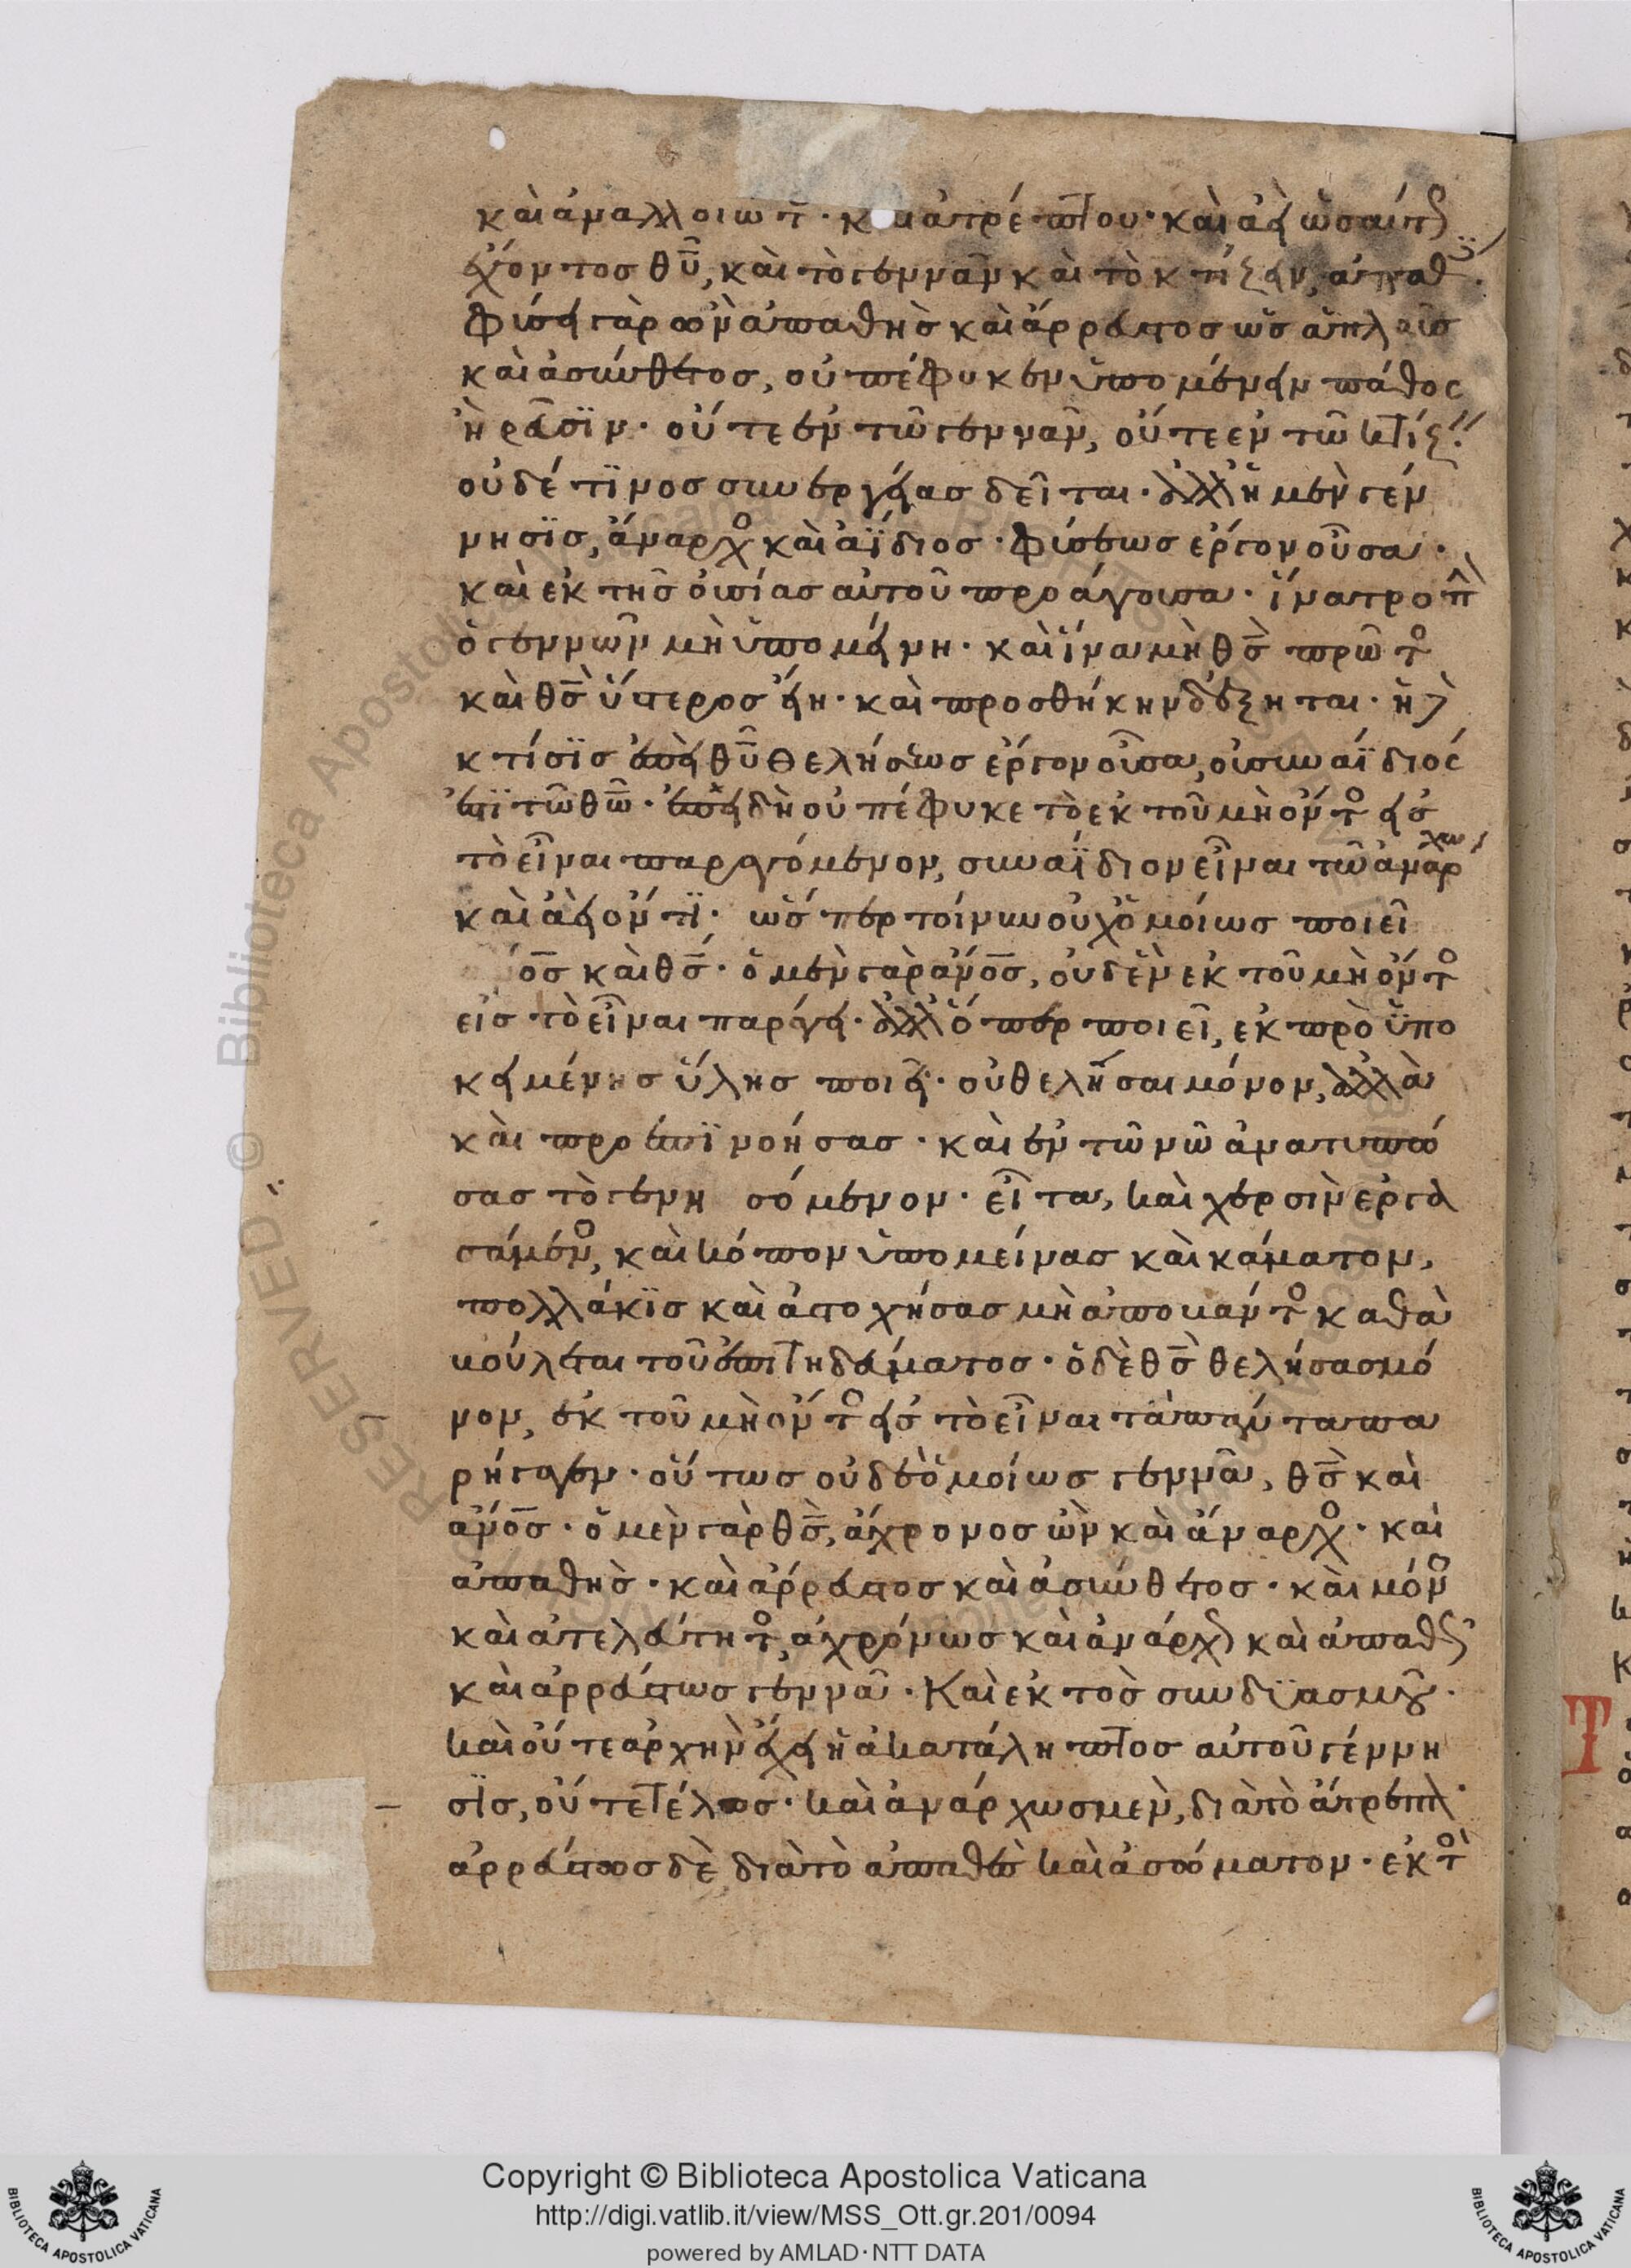 καὶ ἀναλλοιώτ · καὶ ἀτρέπτου · καὶ ἀεὶ ὡσαύτ
ἔχοντος θῦ, καὶ τὸ γεννᾶν καὶ τὸ κτίζειν, ἀπαθ
φύσει γὰρ ὢν ἀπαθὴς καὶ ἄρρευστος ὡς ἁπλοῦς
καὶ ἀσύνθετος, οὐ πέφυκεν ὑπομένειν πάθος
ἢ ῥεῦσϊν · οὔτε ἐν τῶ γεννᾶν, οὔτε ἐν τῶ κτίζ
οὐδέ τϊνος συνεργείας δεῖται · ἀλλ' ἡ μὲν γέν
νησϊς, ἄναρχο καὶ ἀΐδιος · φύσεως ἔργον οὖσα ·
καὶ ἐκ τῆς οὐσίας αὐτοῦ προάγουσα · ἵνα τροπ
ὁ γεννῶν μὴ ὑπομείνη · καὶ ἵνα μὴ θς πρῶτο
καὶ θς ὕστερος εἴη · καὶ προσθήκην δέξηται · ἡ δὲ
κτίσϊς ἐπὶ θῦ θελήσεως ἔργον οὖσα, οὐ συναΐδιός
ἐστϊ τῶ θῶ · ἐπειδὴ οὐ πέφυκε τὸ ἐκ τοῦ μὴ ὄντο εἰς
τὸ εἶναι παραγόμενον, συναΐδιον εἶναι τῶ ἀνάρχω
καὶ ἀεὶ ὄντϊ · ὥσπερ τοίνυν οὐχ ὁμοίως ποιεῖ
ος καὶ θς · ὁ μὲν γὰρ ἀνος, οὐδὲν ἐκ τοῦ μὴ ὄντο
εἰς τὸ εἶναι παράγει · ἀλλ' ὅπερ ποιεῖ, ἐκ προϋπο
κειμένης ὕλης ποιεῖ · οὐ θελήσας μόνον, ἀλλὰ
καὶ προεπϊνοήσας · καὶ ἐν τῶ νῶ ἀνατυπώ
σας τὸ γενησόμενον · εἶτα, καὶ χερσὶν ἐργα
σάμενο, καὶ κόπον ὑπομείνας καὶ κάματον,
πολλάκϊς καὶ ἀστοχήσας μὴ ἀποβάντο καθὰ
βούλεται τοῦ ἐπιτηδεύματος · ὁ δὲ θς θελήσας μό
νον, ἐκ τοῦ μὴ ὄντο εἰς τὸ εἶναι τὰ πάντα πα
ρήγαγεν · οὕτως οὐδὲ ὁμοίως γεννᾶ, θς καὶ
ἀνος · ὁ μὲν γὰρ θς, ἄχρονος ὢν καὶ ἄναρχο · καὶ
ἀπαθὴς · καὶ ἄρρευστος καὶ ἀσύνθετος · καὶ μόνο
καὶ ἀτελεύτητο, ἀχρόνως καὶ ἀνάρχ καὶ ἀπαθ
καὶ ἀρρεύστως γεννᾶ · καὶ ἐκτὸς συνδϊασμοῦ ·
καὶ οὔτε ἀρχὴν ἔχει ἡ ἀκατάληπτος αὐτοῦ γέννη
σϊς, οὔτε τέλος · καὶ ἀνάρχως μὲν, διὰ τὸ ἄτρεπτ
ἀρρεύστως δὲ διὰ τὸ ἀπαθὲς καὶ ἀσώματον · ἐκτὸ
Copyright © Biblioteca Apostolica Vaticana
http://digi.vatlib.it/view/MSS_Ott.gr.201/0094
powered by AMLAD·NTT DATA